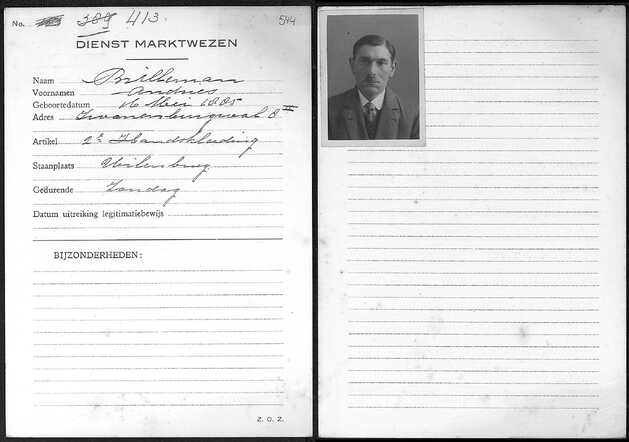 No. 309 413 544
DIENST MARKTWEZEN
Naam Brilleman
Voornamen Andries
Geboortedatum 16 Mei 1885
Adres Zwanenburgwal 8 II
Artikel 2e Handskleeding
Staanplaats Uilenburg
Gedurende Zondag
Datum uitreiking legitimatiebewijs
BIJZONDERHEDEN:
Z. O. Z.